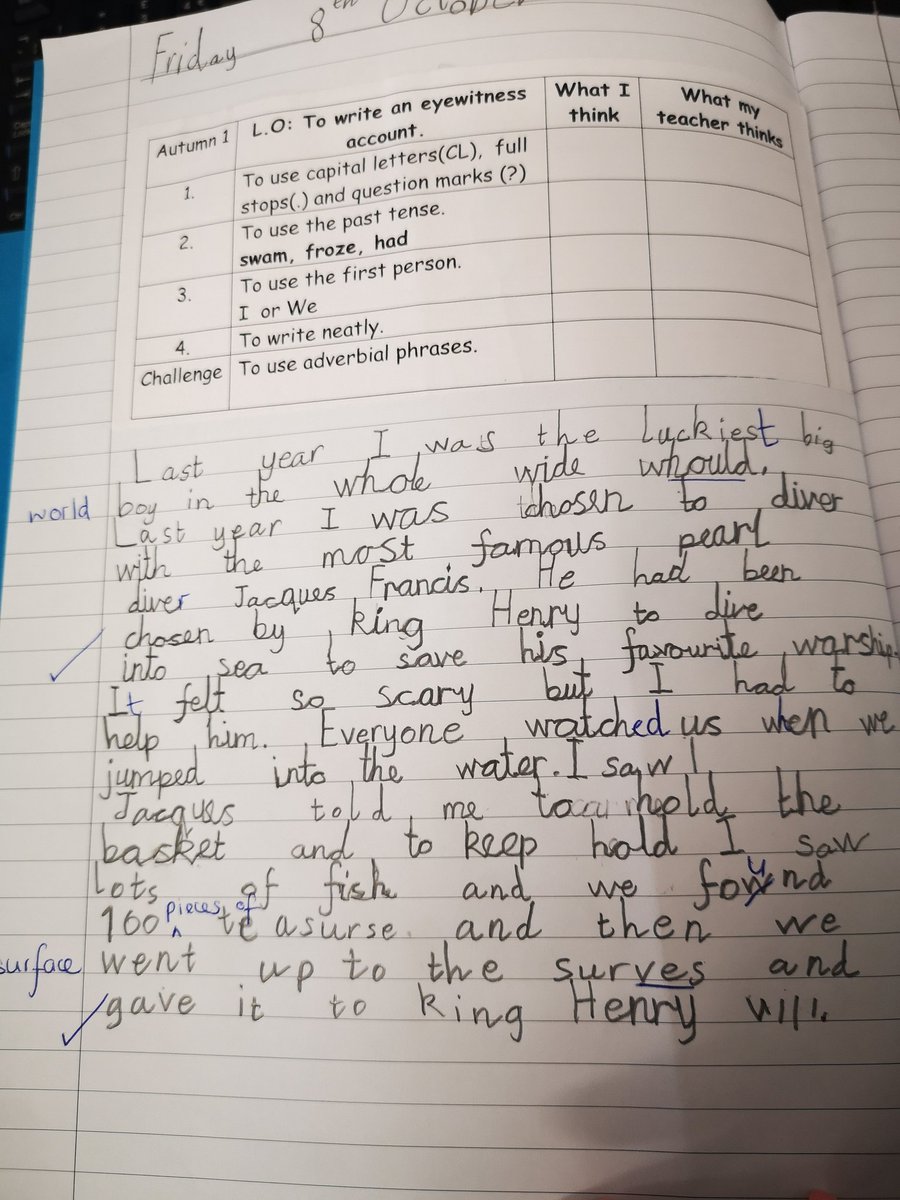 Friday 8th October
Autumn 1 L.O: To write an eyewitness account. What I think What my teacher thinks
1. To use capital letters(CL), full stops(.) and question marks (?)
2. To use the past tense.
swam, froze, had
3. To use the first person.
I or We
4. To write neatly.
Challenge To use adverbial phrases.
Last year I was the luckiest big
world boy in the whole wide whould.
Last year I was chosen to diver
with the most famous pearl
diver Jacques Francis. He had been
chosen by king Henry to dive
into sea to save his favourite warship.
It felt so scary but I had to
help him. Everyone watched us when we
jumped into the water. I saw
Jacques told me to hold the
basket and to keep hold I saw
lots of fish and we found
100 pieces of teasurse. and then we
surface went up to the surves and
gave it to king Henry VIII.